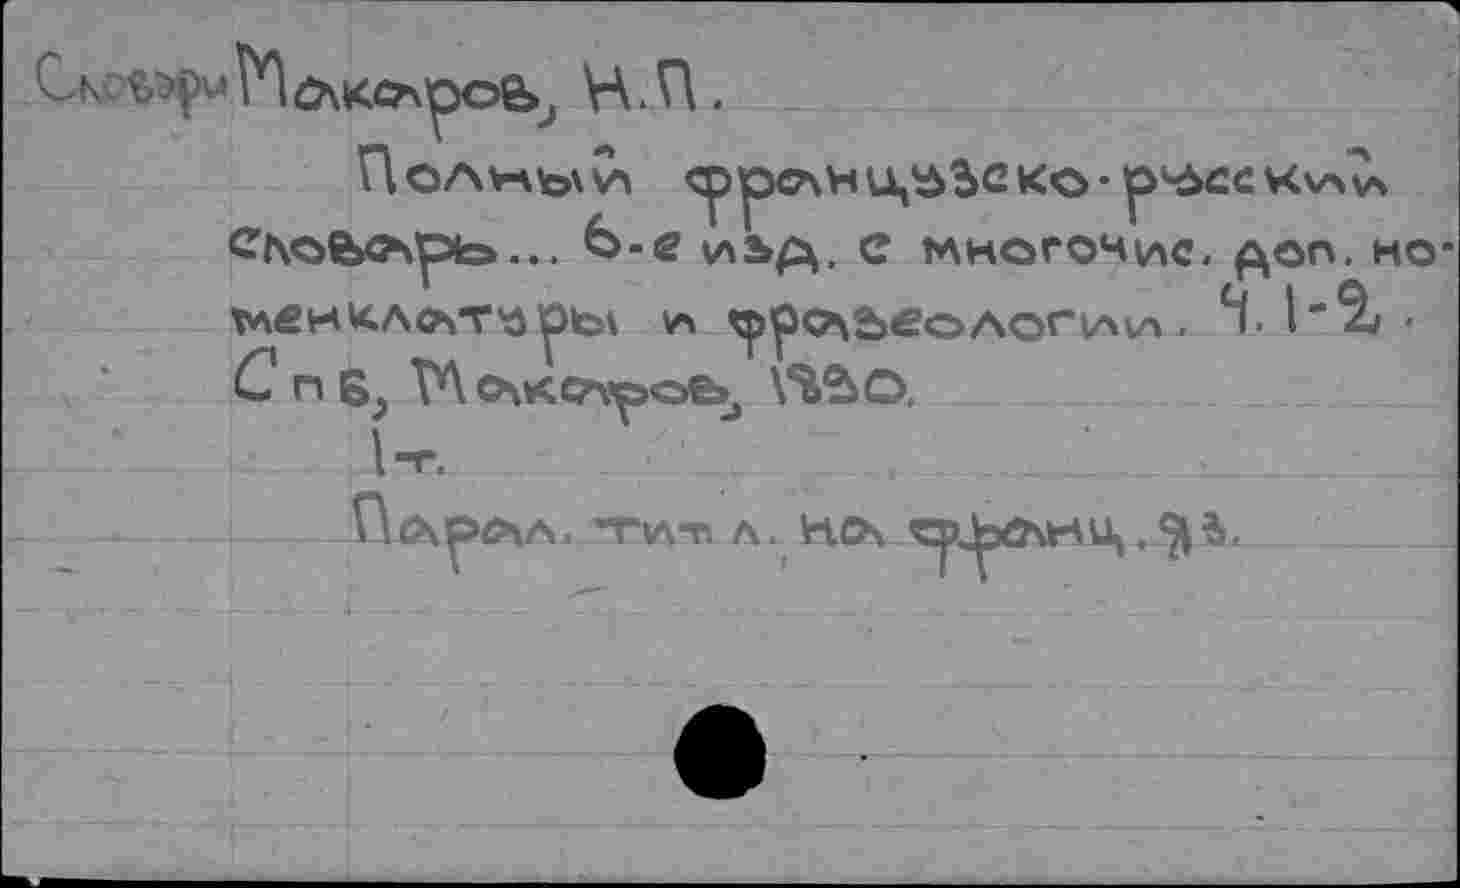 Словари Макаров, Н.П.
Полный французско-русский
словарь... 6-е изд. с многочис. доп. но-
менклатуры и фразеологии. Ч. 1-2.
СпБ, Макаров, 1880.
1 т.
Парал. тит. л. на франц. яз.